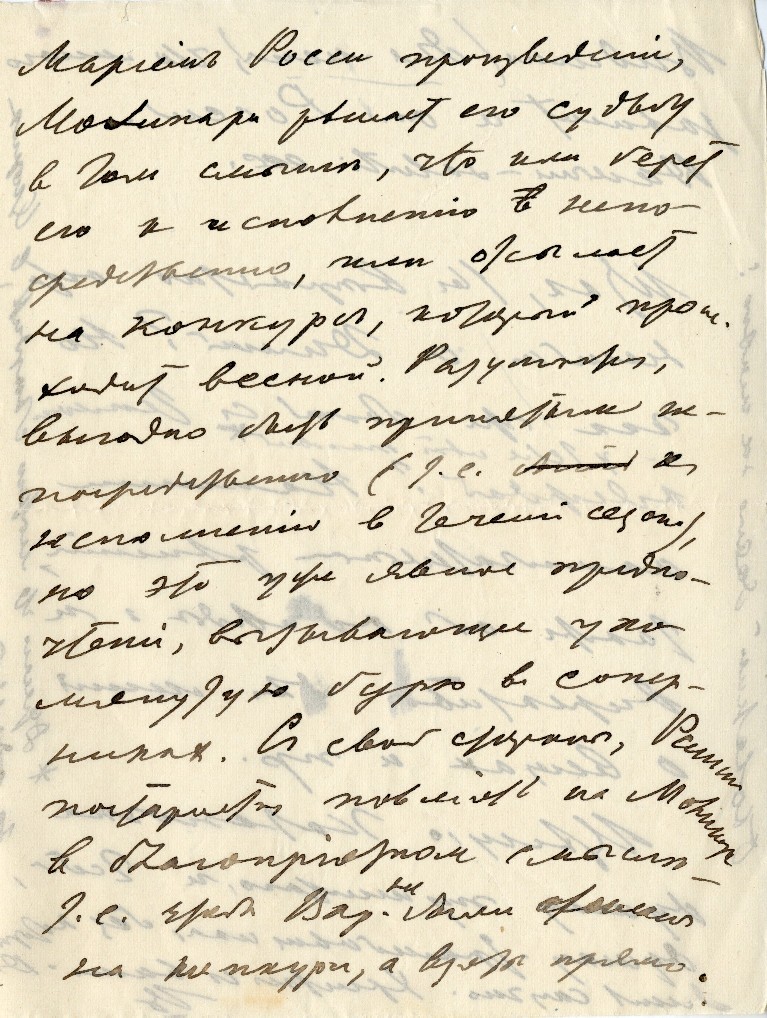 Маріемъ Росси произведеній,
Молинари рѣшаетъ его судьбу
в том смыслѣ, что или берет
его к исполненію непо-
средственно, или отсылает
на конкурс, который проис-
ходит весной. Разумѣется,
выгодно быть принятым не-
посредственно (т.е. к
исполненію в теченіи сезона),
но это уже явное предпо-
чтеніе, вызывающее упо
мянутую бурю в сопер-
никах. С своей стороны,
постарается повліять на Молинари
в благопріятном смыслѣ –
т.е. чтоб Вар. не были
на конкурс, а взяты прямо.